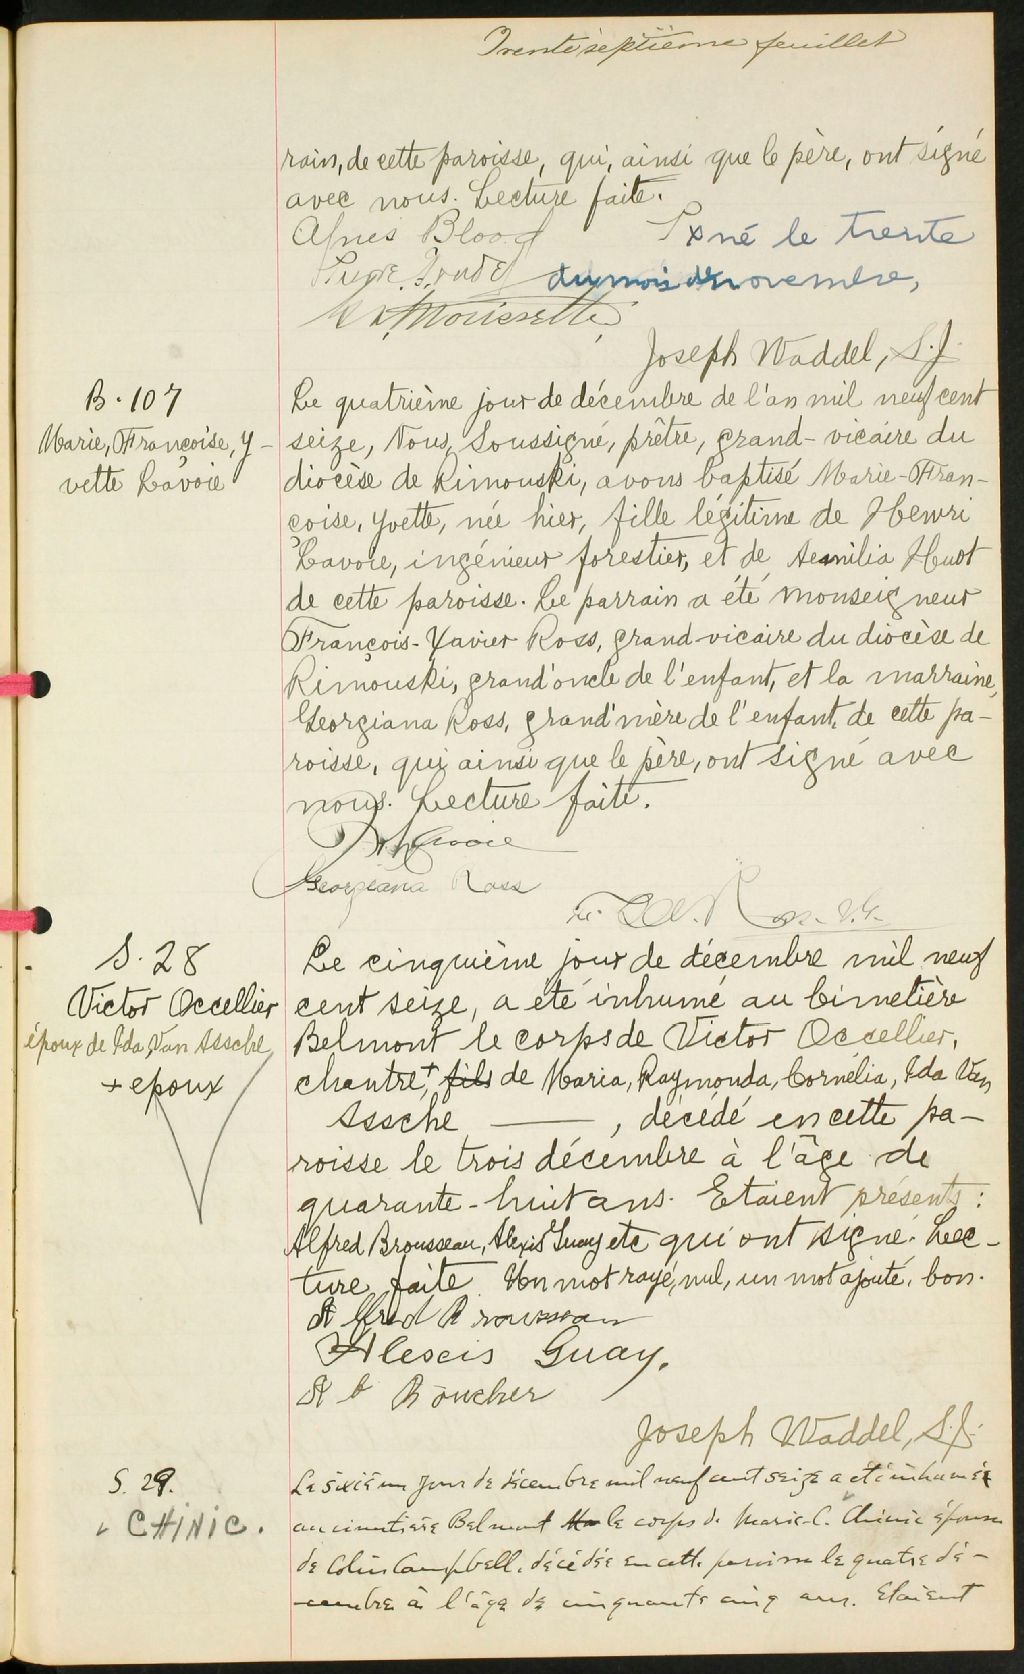 Trente septième feuillet
rain, de cette paroisse, qui, ainsi que le père, ont signé
avec nous. Lecture faite.
Agnes Blood
x né le trente
du mois de novembre,
Morissette
Joseph Waddel, S.J.
B. 107
Marie, Françoise, Y-
vette Lavoie
Le quatrième jour de décembre de l'an mil neuf cent
seize, Nous, Soussigné, prêtre, grand-vicaire du
diocèse de Rimouski, avons baptisé Marie-Fran-
çoise, Yvette, née hier, fille légitime de Henri
Lavoie, ingénieur forestier, et de Aemilia Huot
de cette paroisse. Le parrain a été monseigneur
François-Xavier Ross, grand-vicaire du diocèse de
Rimouski, grand'oncle de l'enfant, et la marraine,
Georgiana Ross, grand'mère de l'enfant, de cette pa-
roisse, qui ainsi que le père, ont signé avec
nous. Lecture faite.
Lavoie
Georgiana Ross
Ross. V.G.
S. 28
Victor Occellier
époux de Ida Van Assche
+ epoux
Le cinquième jour de décembre mil neuf
cent seize, a été inhumé au Cimetière
Belmont le corps de Victor Occellier,
chantre, + fils de Maria, Raymonda, Cornélia, Ida Van
Assche ——, décédé en cette pa-
roisse le trois décembre à l'âge de
quarante-huit ans. Etaient présents:
Alfred Brousseau, Alexis Guay etc qui ont signé. Lec-
ture faite. Un mot rayé, nul, un mot ajouté, bon.
Alfred Brousseau
Alexis Guay.
Boucher
Joseph Waddel, S.J.
S. 29.
CHINIC.
Le sixième jour de décembre mil neuf cent seize a été inhumée
au cimetière Belmont le corps de Marie-C. Chinic épouse
de Colin Campbell, décédée en cette paroisse le quatre dé-
cembre à l'âge de cinquante cinq ans. Etaient